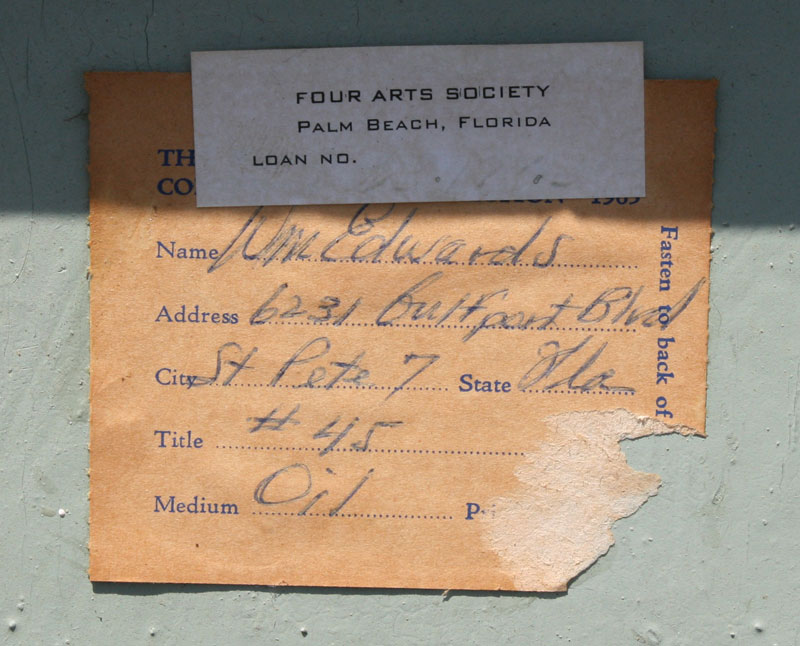 FOUR ARTS SOCIETY
PALM BEACH, FLORIDA
LOAN NO.
TH
CO
Name Wm Edwards
Address 6231 Gulfport Blvd
City St Pete 7 State Fla
Title # 45
Medium Oil P
Fasten to back of